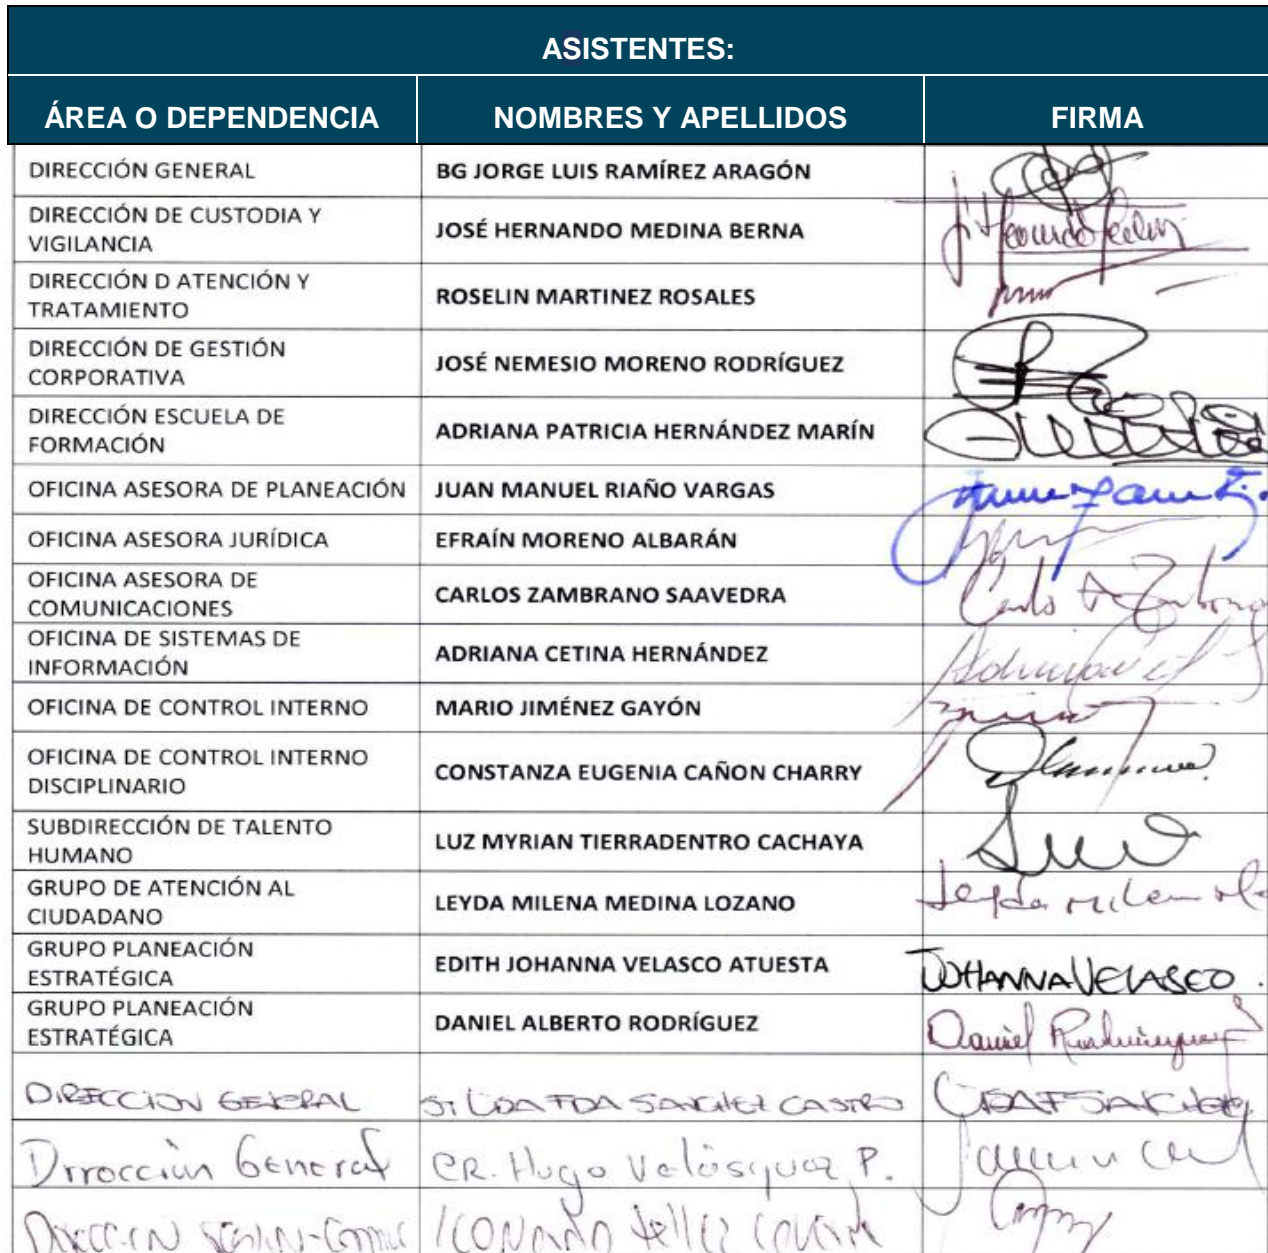 ASISTENTES:
ÁREA O DEPENDENCIA NOMBRES Y APELLIDOS FIRMA
DIRECCIÓN GENERAL BG JORGE LUIS RAMÍREZ ARAGÓN
DIRECCIÓN DE CUSTODIA Y
VIGILANCIA
JOSÉ HERNANDO MEDINA BERNA
DIRECCIÓN D ATENCIÓN Y
TRATAMIENTO
ROSELIN MARTINEZ ROSALES
DIRECCIÓN DE GESTIÓN
CORPORATIVA
JOSÉ NEMESIO MORENO RODRÍGUEZ
DIRECCIÓN ESCUELA DE
FORMACIÓN
ADRIANA PATRICIA HERNÁNDEZ MARÍN
OFICINA ASESORA DE PLANEACIÓN JUAN MANUEL RIAÑO VARGAS
OFICINA ASESORA JURÍDICA EFRAÍN MORENO ALBARÁN
OFICINA ASESORA DE
COMUNICACIONES
CARLOS ZAMBRANO SAAVEDRA
OFICINA DE SISTEMAS DE
INFORMACIÓN
ADRIANA CETINA HERNÁNDEZ
OFICINA DE CONTROL INTERNO MARIO JIMÉNEZ GAYÓN
OFICINA DE CONTROL INTERNO
DISCIPLINARIO
CONSTANZA EUGENIA CAÑON CHARRY
SUBDIRECCIÓN DE TALENTO
HUMANO
LUZ MYRIAN TIERRADENTRO CACHAYA
GRUPO DE ATENCIÓN AL
CIUDADANO
LEYDA MILENA MEDINA LOZANO Leyda Milena
GRUPO PLANEACIÓN
ESTRATÉGICA
EDITH JOHANNA VELASCO ATUESTA JOHANNA VELASCO.
GRUPO PLANEACIÓN
ESTRATÉGICA
DANIEL ALBERTO RODRÍGUEZ Daniel Rodriguez
DIRECCION GENERAL SANCHEZ CASTRO
Dirección General CR. Hugo Velásquez P.